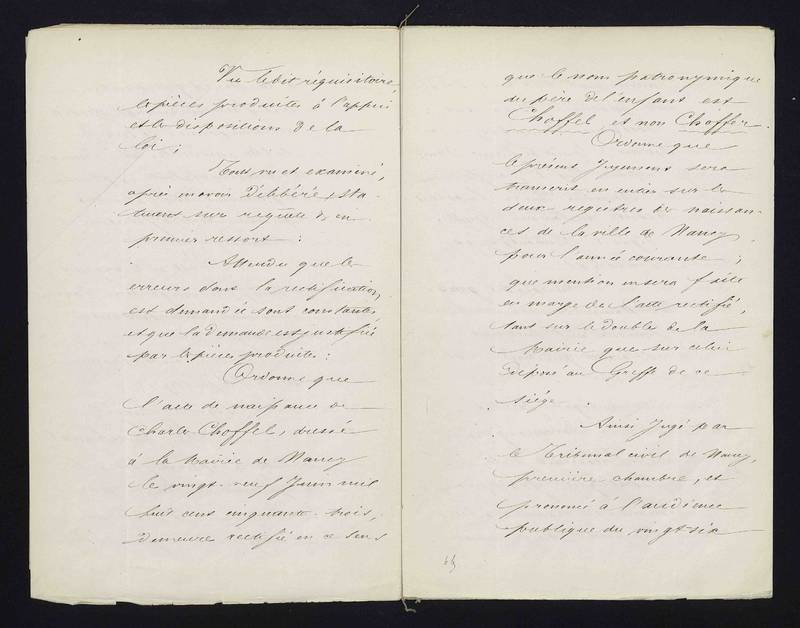 Vu ledit réquisitoire,
les pièces produites à l'appui
et les dispositions de la
loi;
Tout vu et examiné,
après en avoir délibéré, sta-
tuant sur requête & en
premier ressort:
Attendu que les
erreurs dont la rectification
est demandée sont constantes,
et que la demande est justifiée
par les pièces produites:
Ordonne que
l'acte de naissance de
Charles Choffel, dressé
à la Mairie de Nancy
le vingt-neuf Juin mil
huit cent cinquante-trois,
demeure rectifié en ce sens
que le nom patronymique
du père de l'enfant est
Choffel et non Choffer.
Ordonne que
le présent Jugement sera
transcrit en entier sur les
deux registres de naissan-
ces de la ville de Nancy
pour l'année courante;
que mention en sera faite
en marge de l'acte rectifié,
tant sur le double de la
Mairie que sur celui
déposé au Greffe de ce
siège.
Ainsi Jugé par
le Tribunal civil de Nancy,
première chambre, et
prononcé à l'audience
publique du vingt-six